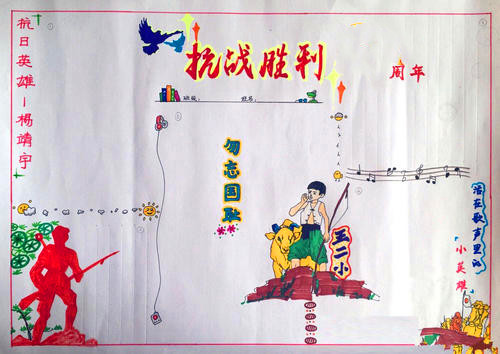 抗战胜利
周年
班级：
姓名：
抗日英雄－杨靖宇
勿忘国耻
王二小
活在歌声里的
小英雄